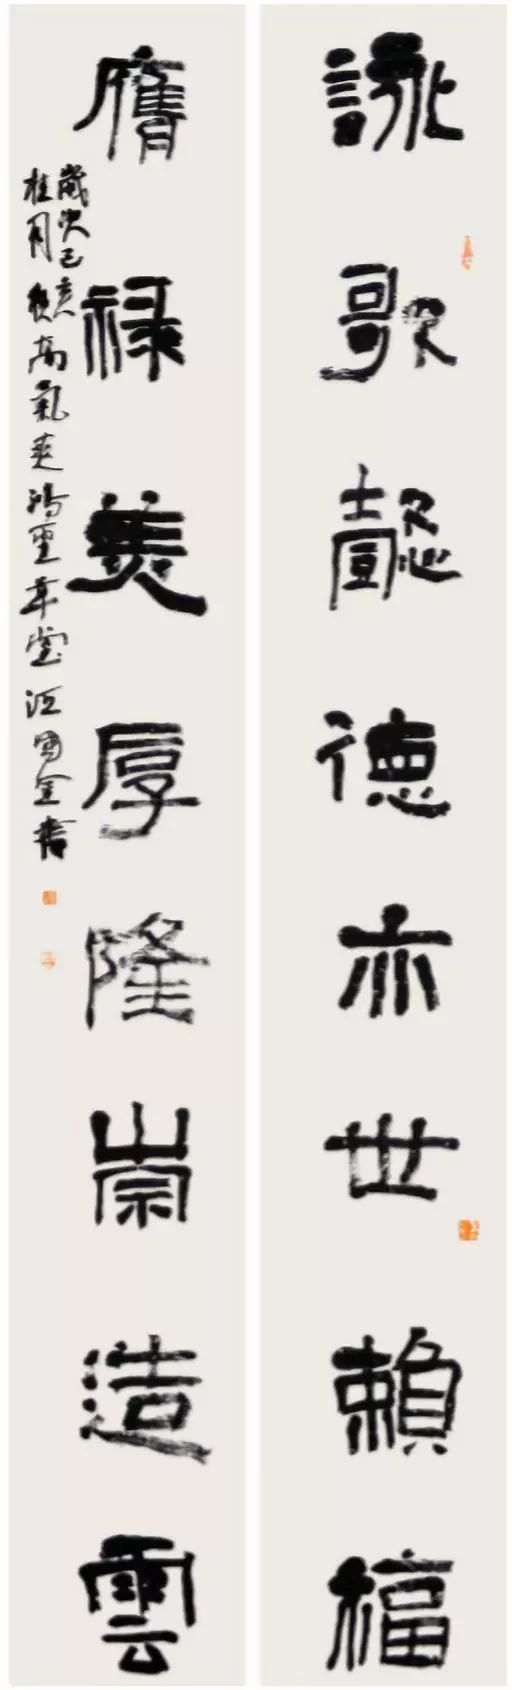 詠歌懿德亦世賴福
膺禄美厚隆崇造雲
歲次己亥
桂月秋高氣爽鴻聖草堂江國金書